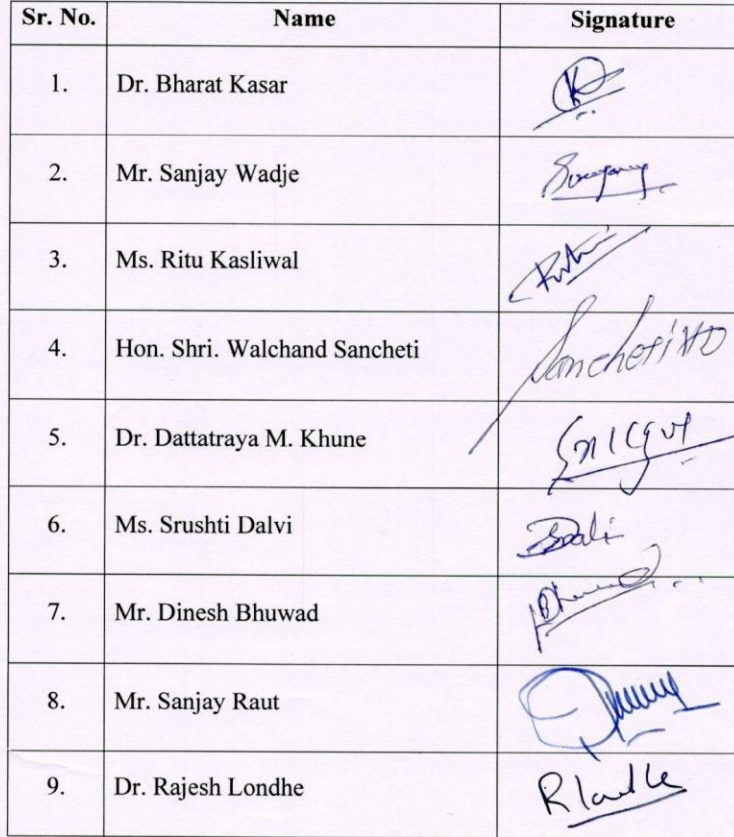 Sr. No. Name Signature
1. Dr. Bharat Kasar
2. Mr. Sanjay Wadje
3. Ms. Ritu Kasliwal
4. Hon. Shri. Walchand Sancheti Sancheti
5. Dr. Dattatraya M. Khune
6. Ms. Srushti Dalvi
7. Mr. Dinesh Bhuwad
8. Mr. Sanjay Raut
9. Dr. Rajesh Londhe